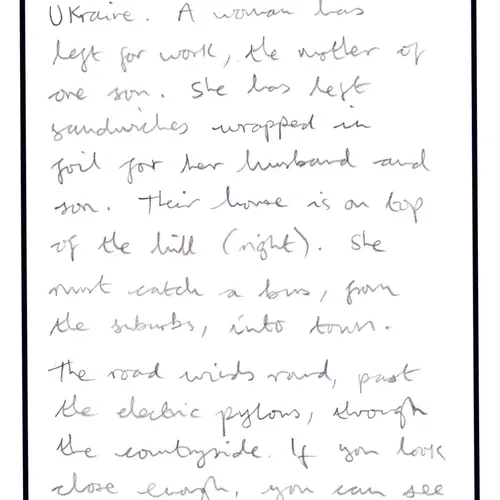 Ukraine. A woman has
left for work, the mother of
one son. She has left
sandwiches wrapped in
foil for her husband and
son. Their house is on top
of the hill (right). She
must catch a bus, from
the suburbs, into town.
The road winds round, past
the electric pylons, through
the countryside. If you look
close enough, you can see